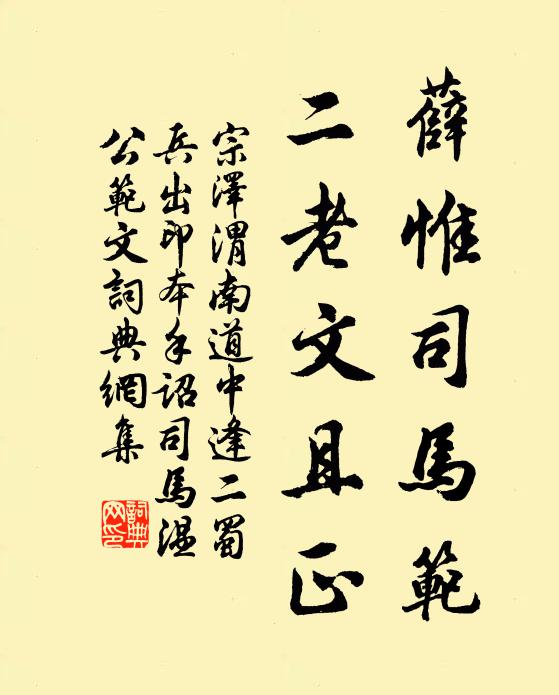 薛惟司馬範
二老文且正
宗澤渭南道中逢二蜀
兵出印本手詔司馬溫
公範文詞典網集
詞典
网印